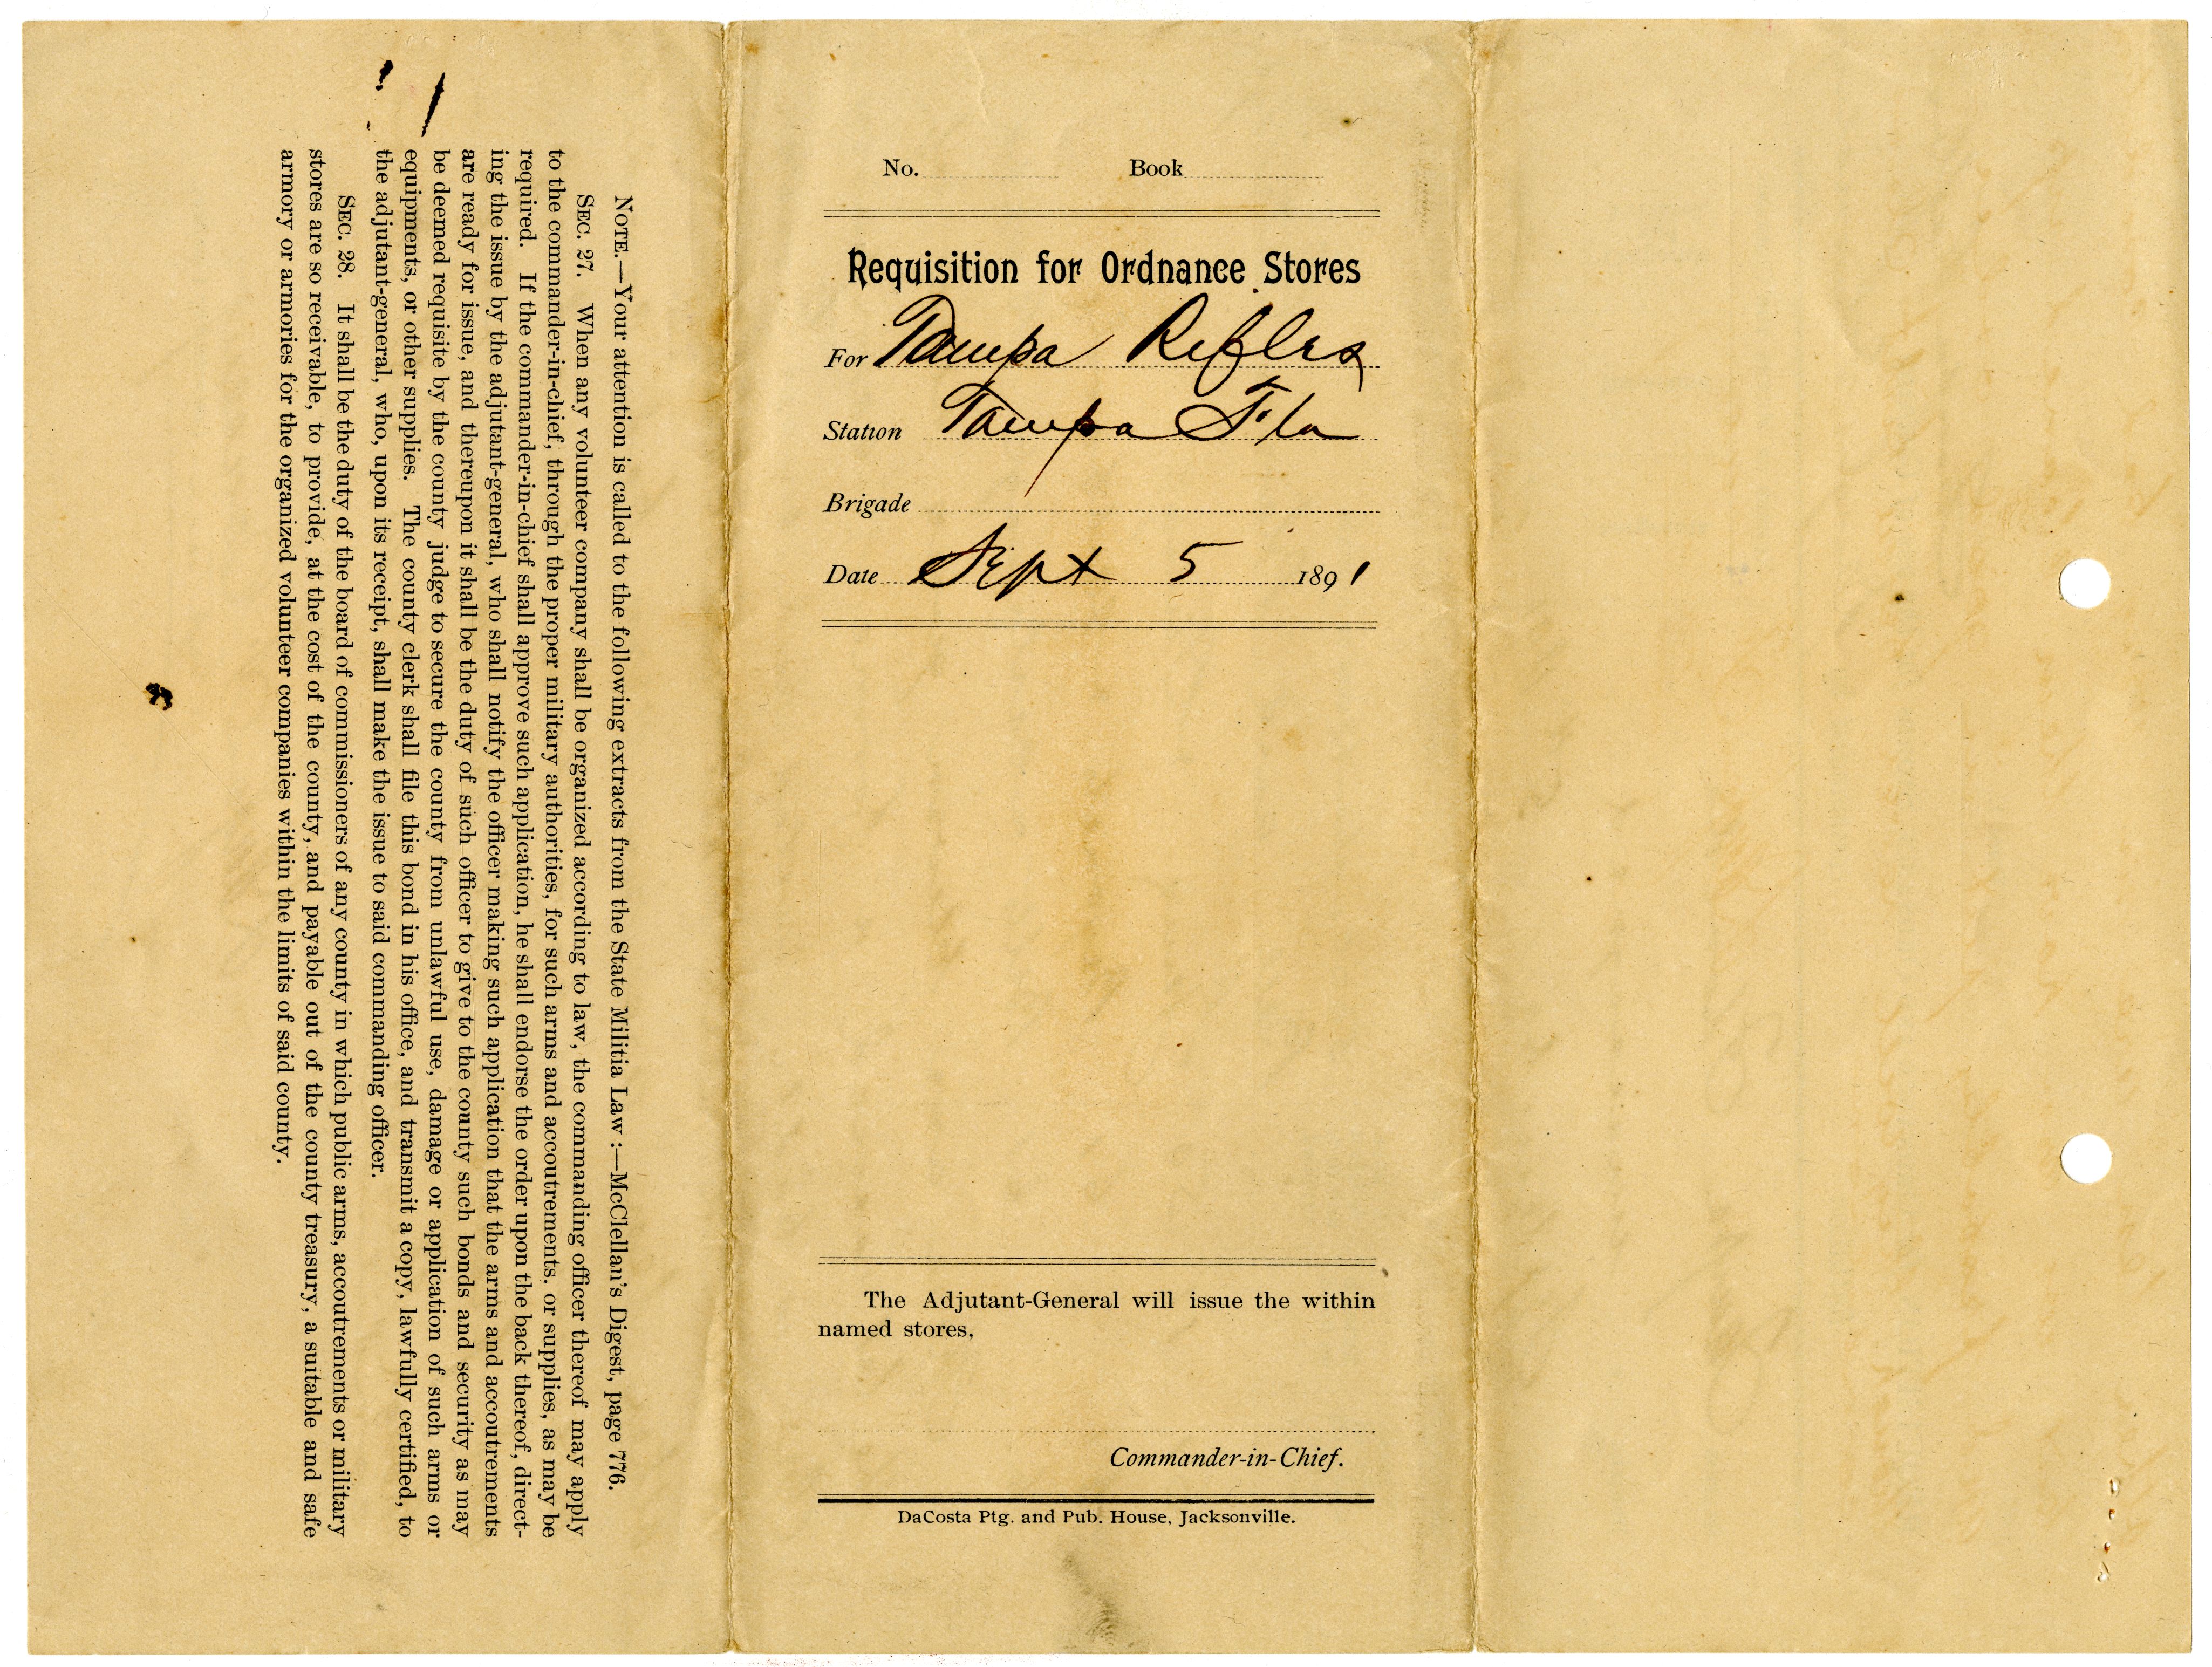 NOTE.—Your attention is called to the following extracts from the State Militia Law:—McClellan's Digest, page 776.
SEC. 27. When any volunteer company shall be organized according to law, the commanding officer thereof may apply
to the commander-in-chief, through the proper military authorities, for such arms and accoutrements, or supplies, as may be
required. If the commander-in-chief shall approve such application, he shall endorse the order upon the back thereof, direct-
ing the issue by the adjutant-general, who shall notify the officer making such application that the arms and accoutrements
are ready for issue, and thereupon it shall be the duty of such officer to give to the county such bonds and security as may
be deemed requisite by the county judge to secure the county from unlawful use, damage or application of such arms or
equipments, or other supplies. The county clerk shall file this bond in his office, and transmit a copy, lawfully certified, to
the adjutant-general, who, upon its receipt, shall make the issue to said commanding officer.
SEC. 28. It shall be the duty of the board of commissioners of any county in which public arms, accoutrements or military
stores are so receivable, to provide, at the cost of the county, and payable out of the county treasury, a suitable and safe
armory or armories for the organized volunteer companies within the limits of said county.
No. Book
Requisition for Ordnance Stores
For Tampa Rifles
Station Tampa Fla
Brigade
Date Sept 5 1891
The Adjutant-General will issue the within
named stores,
Commander-in-Chief.
DaCosta Ptg. and Pub. House, Jacksonville.